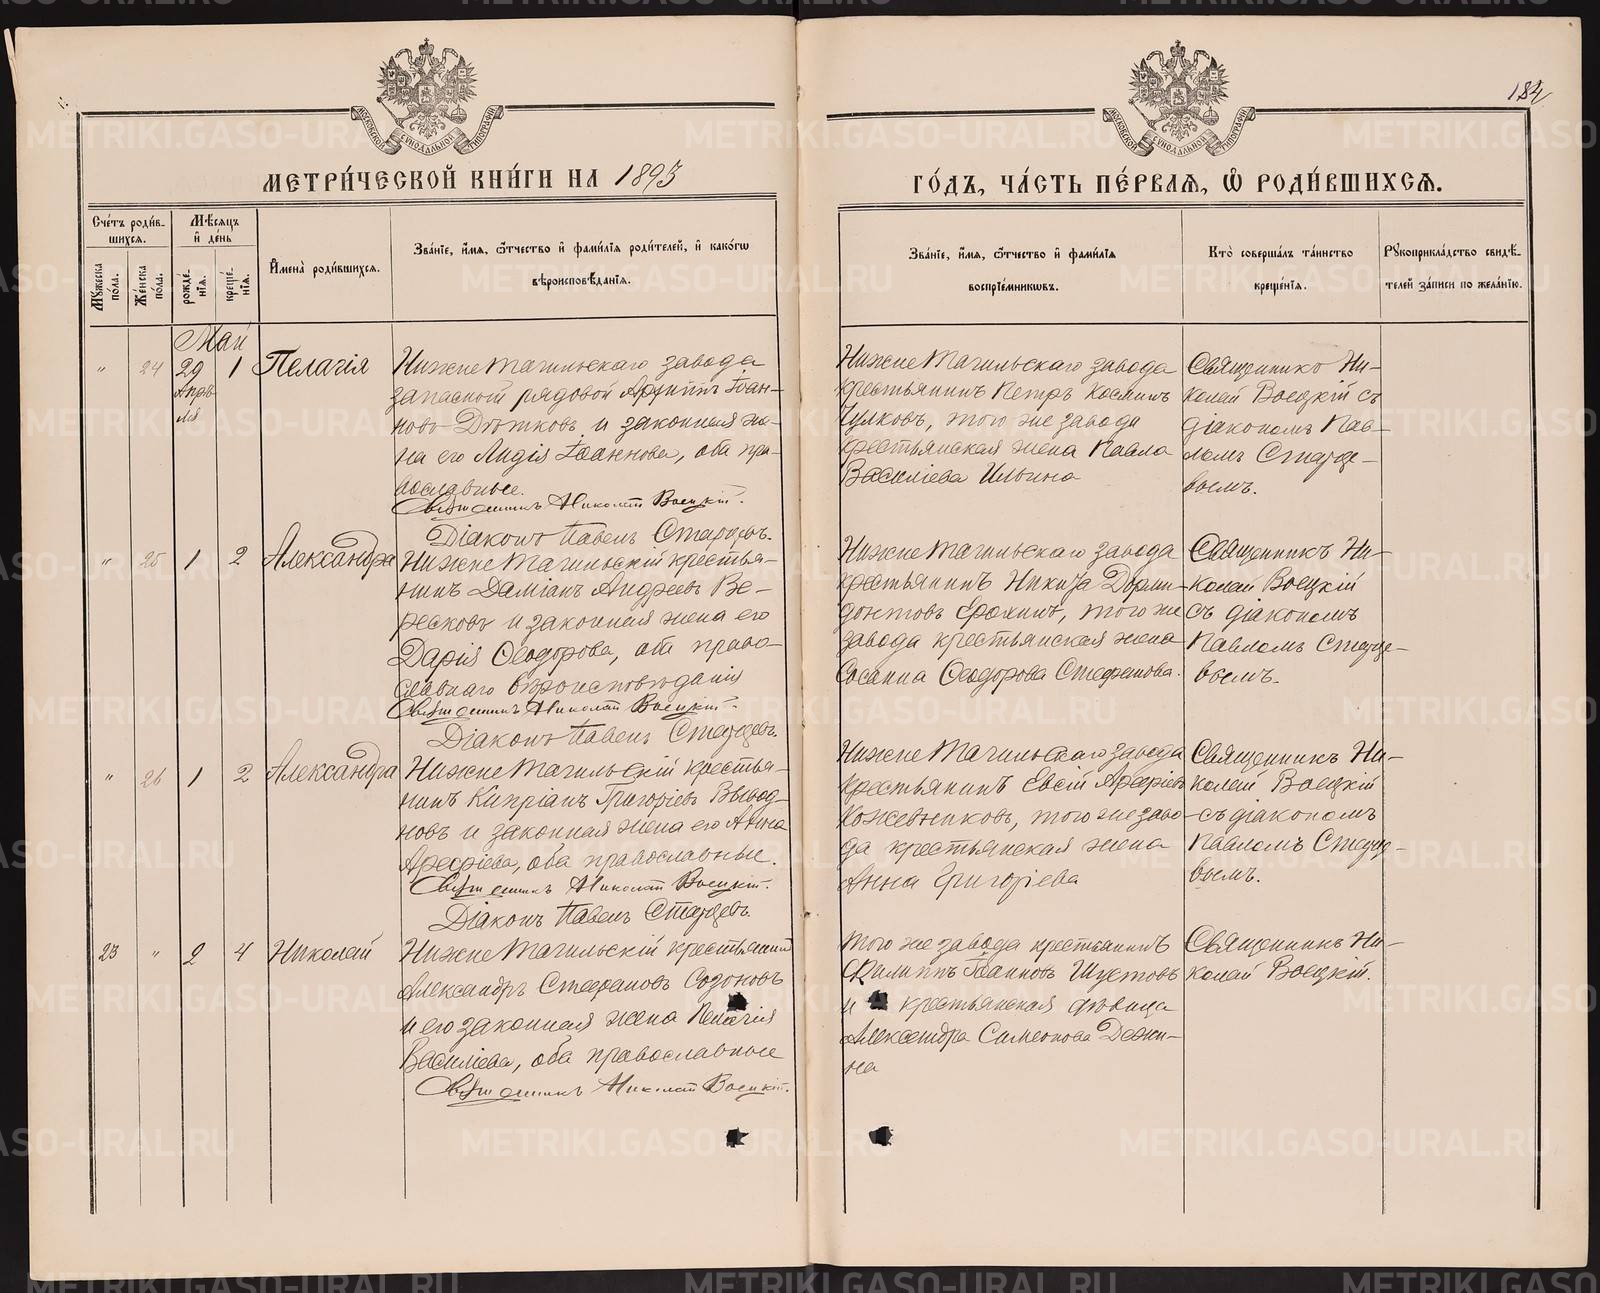 184
МЕТРИ́ЧЕСКОЙ КНИ́ГИ НА 1893
ГО́ДЪ, ЧА́СТЬ ПЕ́РВАѦ, Ѽ РОДИ́ВШИХСѦ.
Сче́тъ роди́в-
шихся.
Мужеска пола.
Же́нска по́ла.
Мѣ́сяцъ
и҆ де́нь
рожде́-
нїя.
креще́-
нїя.
И҆мена̀ роди́вшихся.
Зва́нїе, и҆́мя, ѻ҆́тчество и҆ фами́лїя роди́телей, и҆ како́гѡ
вѣроисповѣ́данїя.
Зва́нїе, и҆́мя, ѻ҆́тчество и҆ фами́лїя
воспрїе́мникѡвъ.
Кто̀ соверша́лъ та́инство
креще́нїя.
Рꙋкоприкла́дство свидѣ́-
телей за́писи по жела́нїю.
Май
" 24 29 Апрѣ-
ля
1 Пелагія
Нижне Тагильскаго завода
запасной рядовой Архипп Іоан-
новъ Дѣтковъ и законная же-
на его Лидія Іоаннова, оба пра-
вославные.
Священникъ Николай Воецкій.
Діаконъ Павелъ Старцевъ.
Нижне Тагильскаго завода
крестьянинъ Петръ Косминъ
Чулковъ, того же завода
крестьянская жена Павла
Василіева Ильина
Священникъ Ни-
колай Воецкій съ
діакономъ Пав-
ломъ Старце-
вымъ.
" 25 1 2 Александра
Нижне Тагильскій крестья-
нинъ Даміанъ Андреевъ Ве-
ресковъ и законная жена его
Дарія Ѳеодорова, оба право-
славнаго вѣроисповѣданія
Священникъ Николай Воецкій.
Діаконъ Павелъ Старцевъ.
Нижне Тагильскаго завода
крестьянинъ Никита Дорми-
донтовъ Ерохинъ, того же
завода крестьянская жена
Сосанна Ѳеодорова Стефанова.
Священникъ Ни-
колай Воецкій
съ діакономъ
Павломъ Старце-
вымъ.
" 26 1 2 Александра
Нижне Тагильскій крестья-
нинъ Кипріанъ Григоріевъ Вывод-
новъ и законная жена его Анна
Арефіева, оба православные.
Священникъ Николай Воецкій.
Діаконъ Павелъ Старцевъ.
Нижне Тагильскаго завода
крестьянинъ Евсій Арефіевъ
Кожевниковъ, того же заво-
да крестьянская жена
Анна Григоріева
Священникъ Ни-
колай Воецкій
съ діакономъ
Павломъ Старце-
вымъ.
23 " 2 4 Николай
Нижне Тагильскій крестьянинъ
Александръ Стефановъ Созоновъ
и его законная жена Пелагія
Василіева, оба православные
Священникъ Николай Воецкій.
Того же завода крестьянинъ
Филиппъ Іоанновъ Шустовъ
и крестьянская дѣвица
Александра Симеонова Дежи-
на
Священникъ Ни-
колай Воецкій.